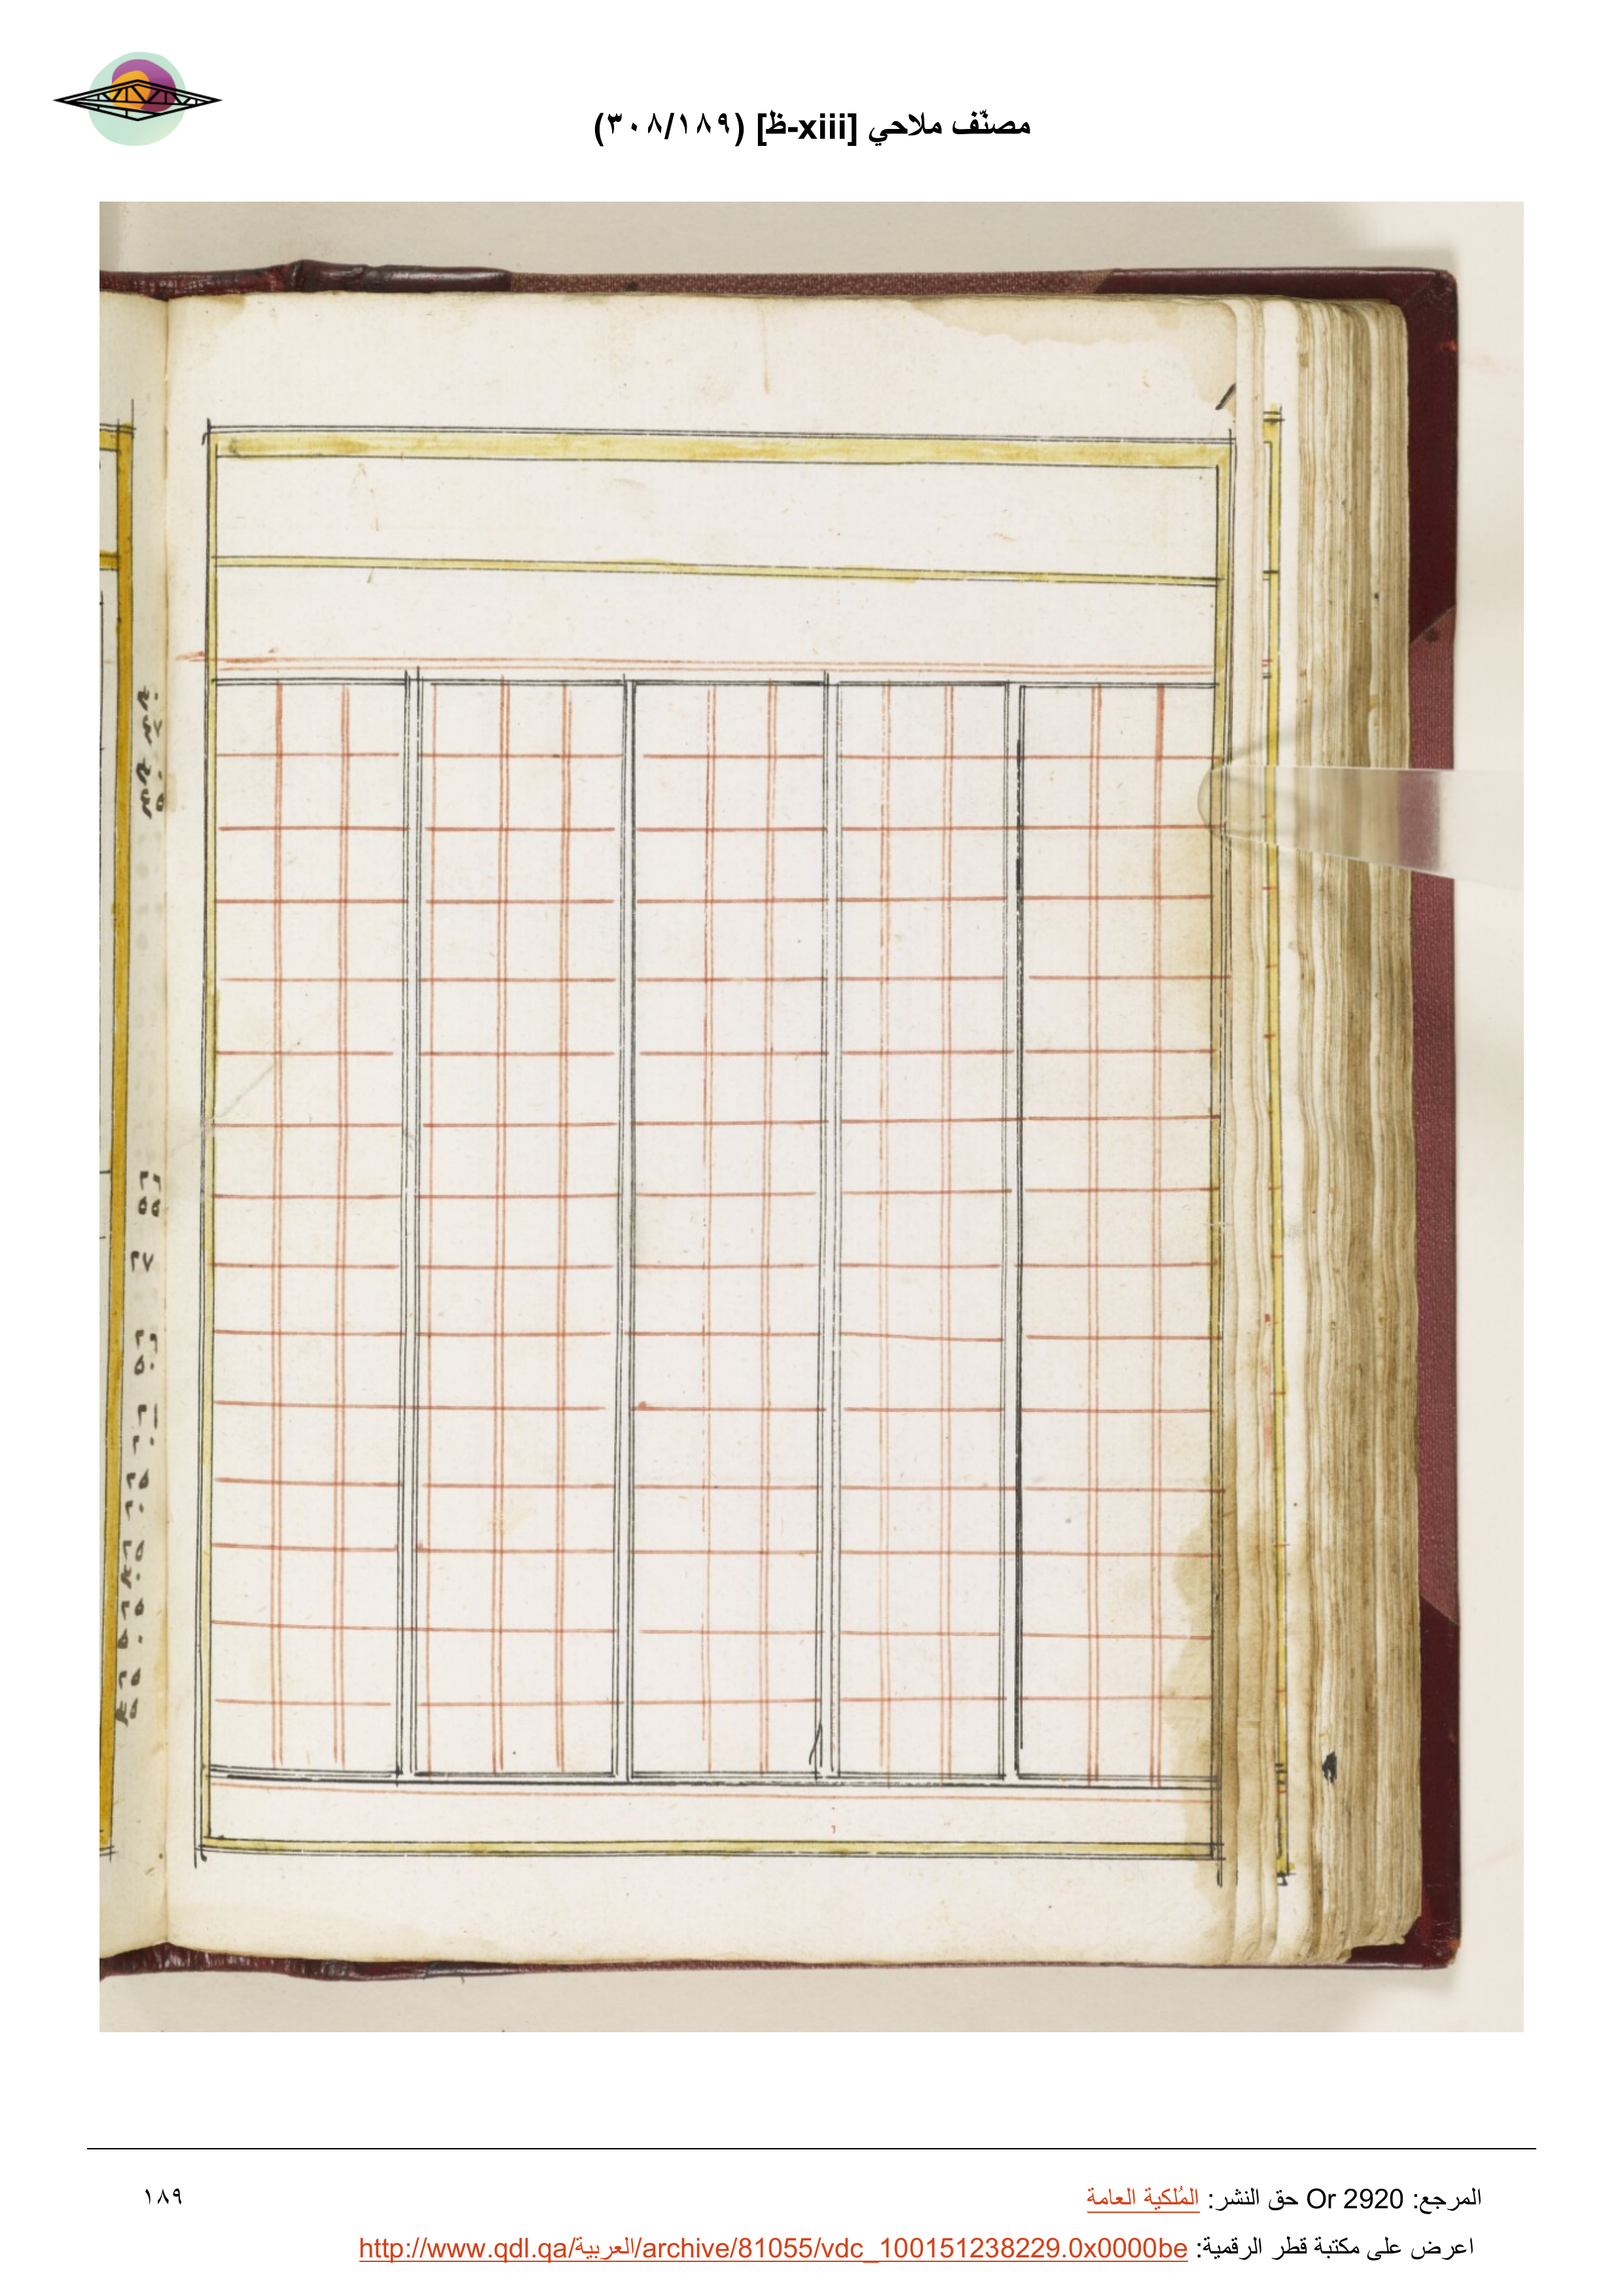 مصنّف ملاحي [xiii-ظ] (٣٠٨/١٨٩)
المرجع: Or 2920 حق النشر: المُلكية العامة
١٨٩
اعرض على مكتبة قطر الرقمية: http://www.qdl.qa/العربية/archive/81055/vdc_100151238229.0x0000be